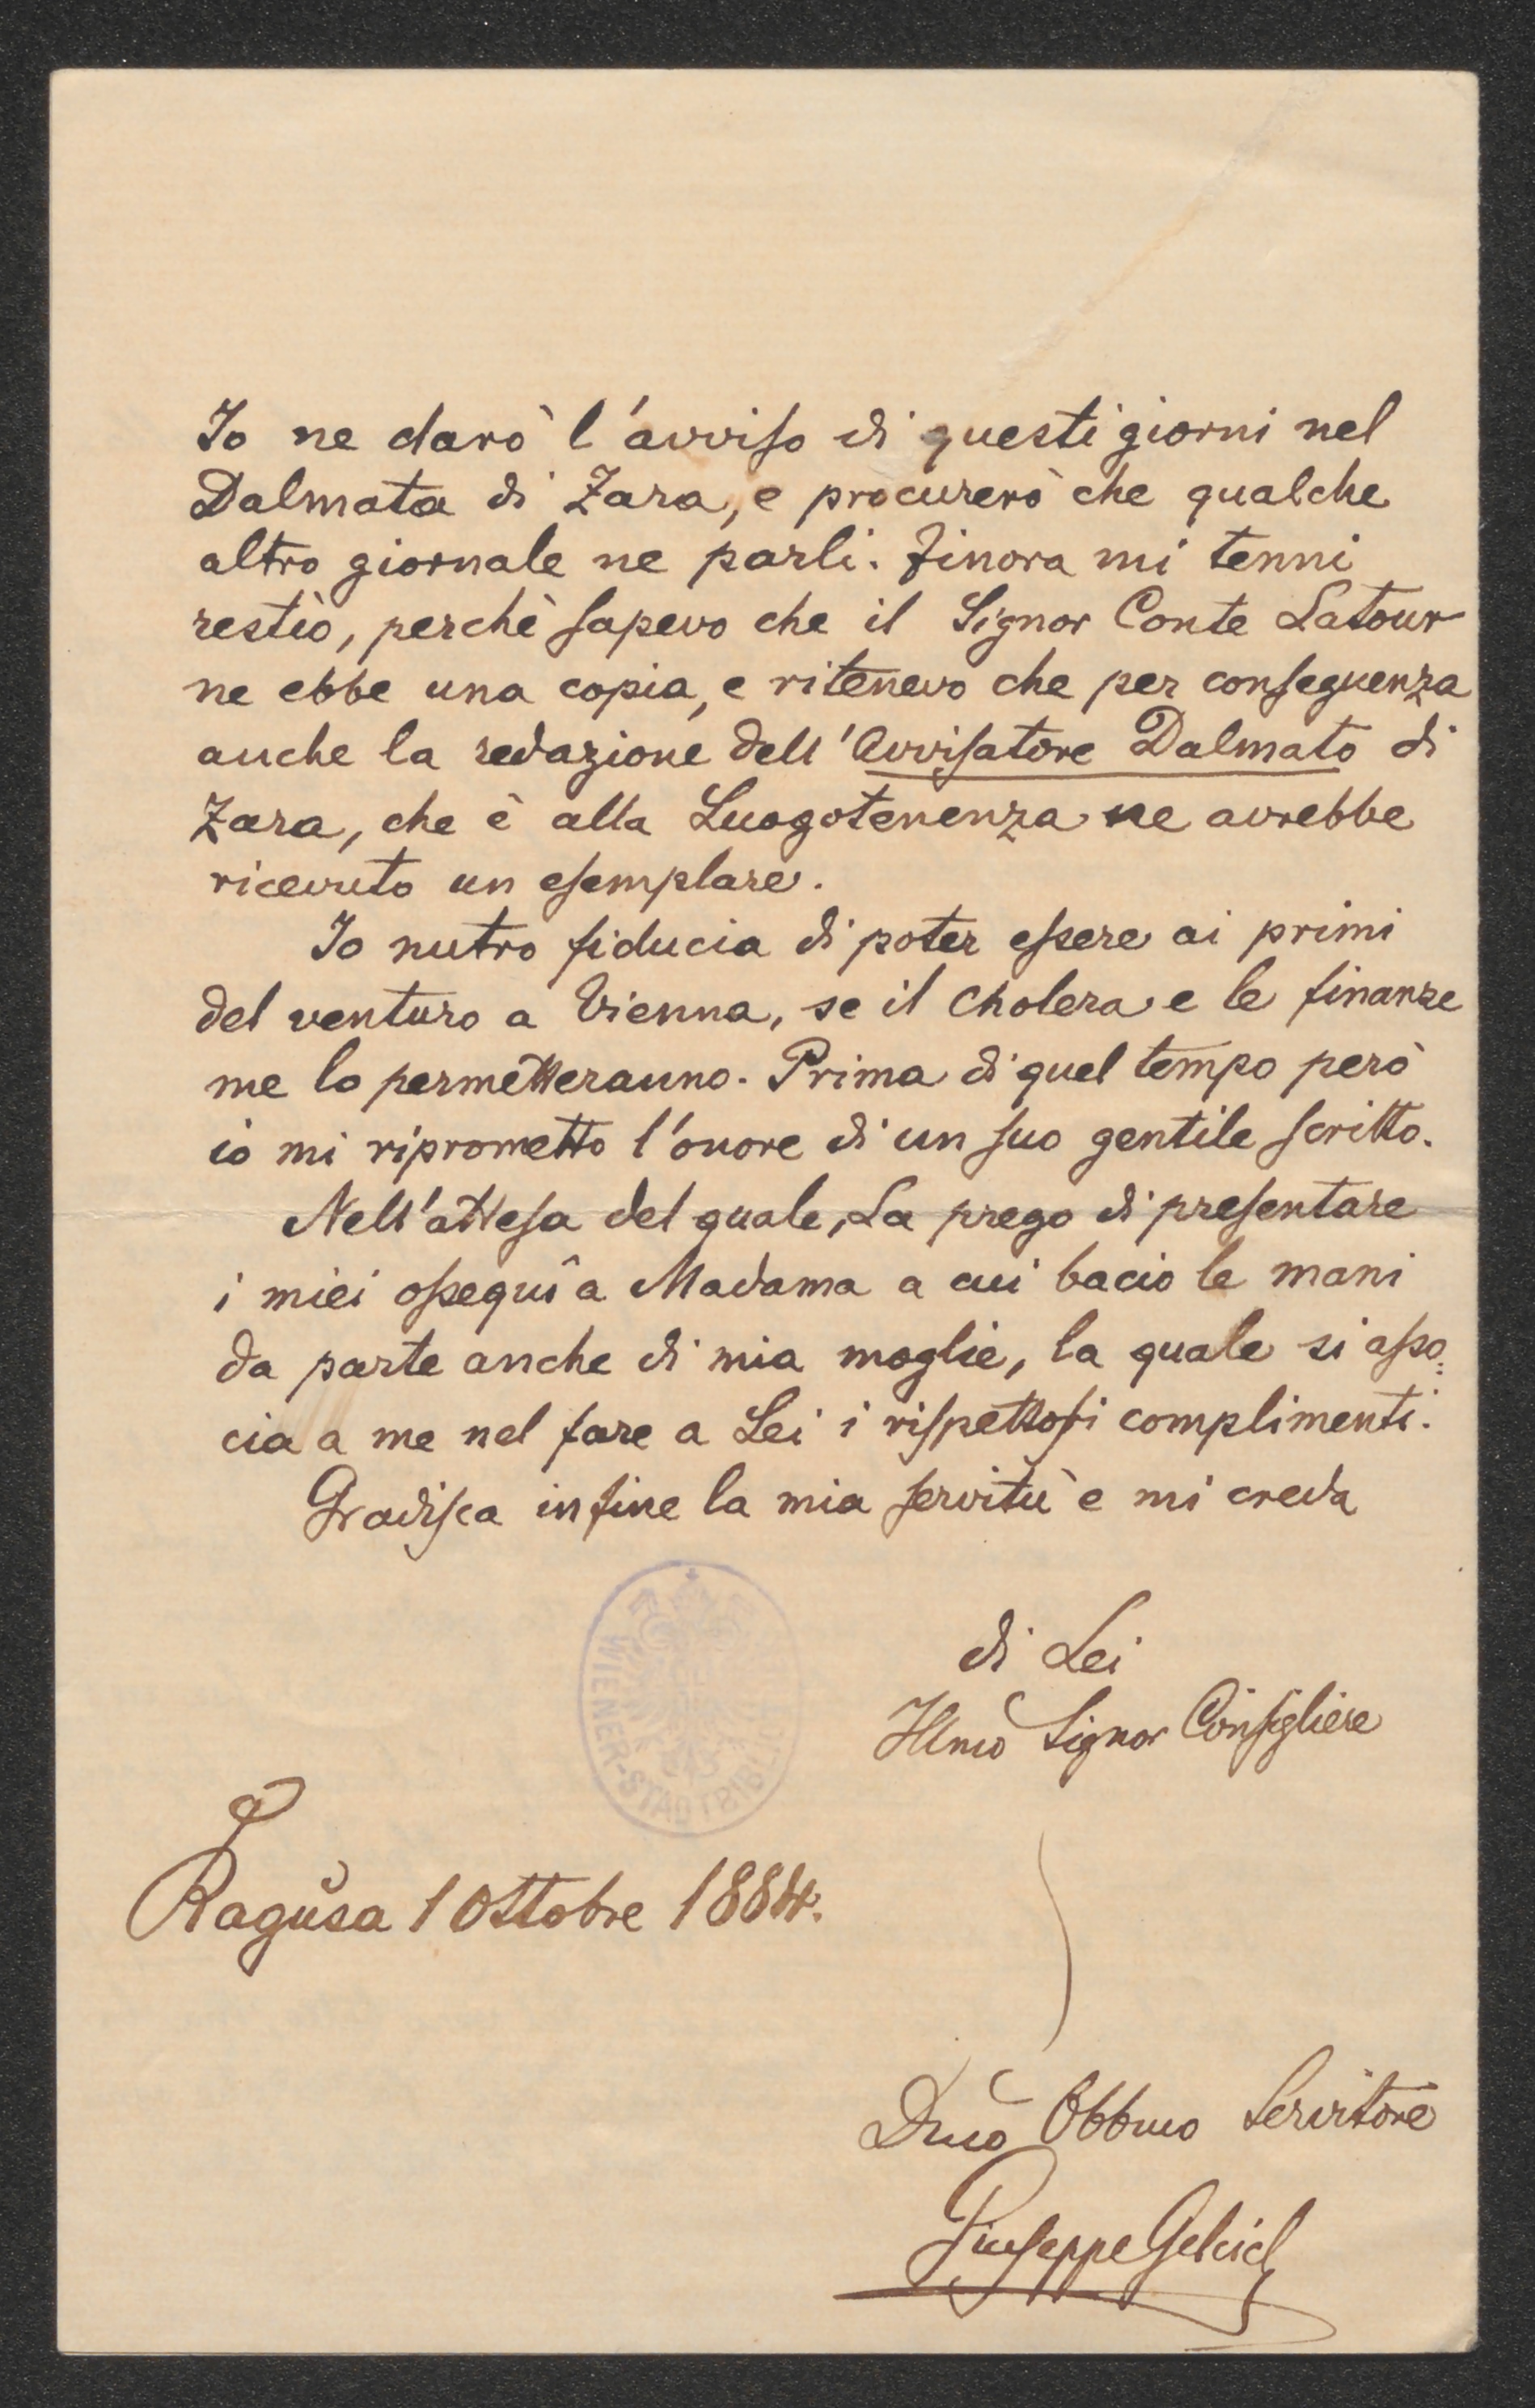 Io ne darò l'avviso di questi giorni nel
Dalmata di Zara, e procurerò che qualche
altro giornale ne parli. Finora mi tenni
restio, perchè sapevo che il Signor Conte Latour
ne ebbe una copia, e ritenevo che per conseguenza
anche la redazione dell'Avvisatore Dalmato di
Zara, che è alla Luogotenenza ne avrebbe
ricevuto un esemplare.
Io nutro fiducia di poter essere ai primi
del venturo a Vienna, se il cholera e le finanze
me lo permetteranno. Prima di quel tempo però
io mi riprometto l'onore di un suo gentile scritto.
Nell'attesa del quale, La prego di presentare
i miei ossequî a Madama a cui bacio le mani
da parte anche di mia moglie, la quale si asso:
cia a me nel fare a Lei i rispettosi complimenti.
Gradisca infine la mia servitù e mi creda
di Lei
Illmo Signor Consigliere
WIENER-STADTBIBL
Ragusa 1 Ottobre 1884.
Dmo Obbmo Servitore
Giuseppe Gelcich